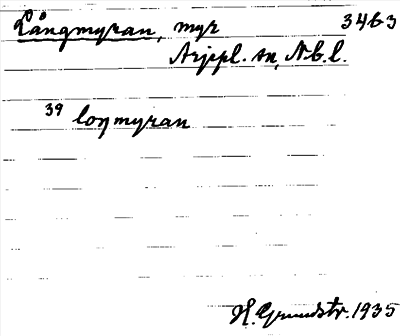 Långmyran, myr 3463
Arjepl. sn, Nb. l.
39 loŋmyran
H. Grundstr. 1935